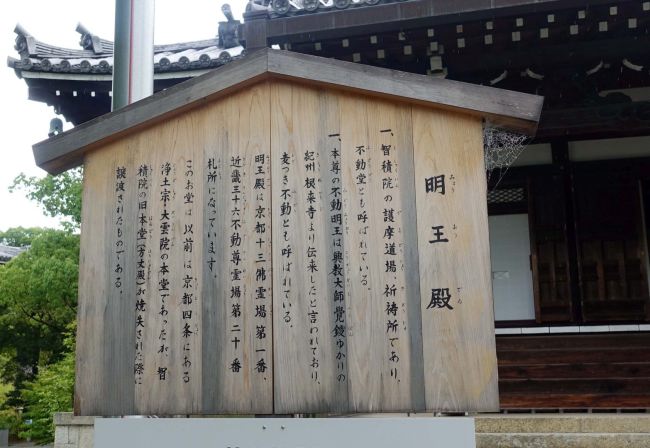 明王殿
一、智積院の護摩道場、祈祷所であり、
不動堂とも呼ばれている。
一、本尊の不動明王は興教大師覚鑁ゆかりの
紀州根来寺より伝来したと言われており、
麦つき不動とも呼ばれている。
明王殿は京都十三佛霊場第一番、
近畿三十六不動尊霊場第二十番
札所になっています。
このお堂は、以前は京都四条にある
浄土宗・大雲院の本堂であったが、智
積院の旧本堂(方丈殿)が焼失された際に
譲渡されたものである。